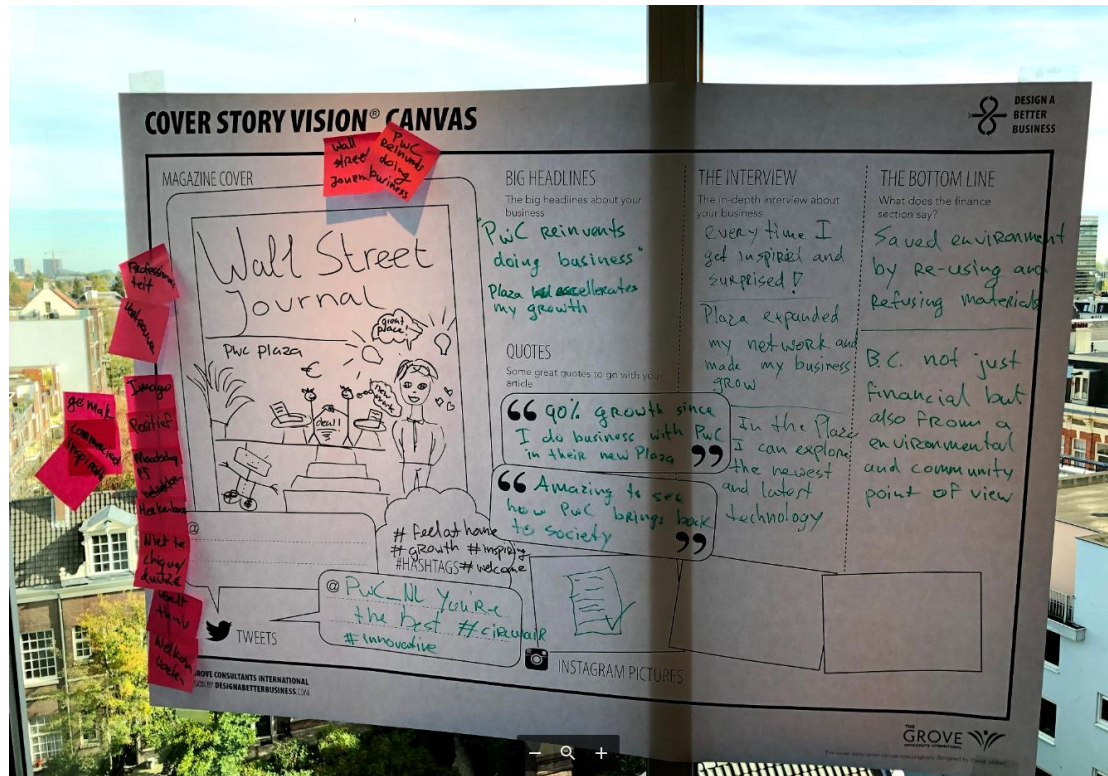 COVER STORY VISION® CANVAS
DESIGN A
BETTER
BUSINESS
Wall
street
PwC
reinvents
doing
business
MAGAZINE COVER
Wall Street
Journal
PWC plaza
€
great
place!
deal!
Imago
Positief
gemak
Niet te
@
BIG HEADLINES
The big headlines about your
business
"PwC reinvents
doing business"
Plaza
my growth
QUOTES
Some great quotes to go with your
article
“ 90% growth since
I do business with PwC
in their new Plaza ”
“ Amazing to see
how PwC brings back
to society ”
THE INTERVIEW
The in-depth interview about
your business
every time I
get inspired and
surprised!
Plaza expanded
my network and
made my business
grow
In the Plaza
I can explore
the newest
and latest
technology
THE BOTTOM LINE
What does the finance
section say?
Saved environment
by re-using and
refusing materials
B.C. not just
financial but
also from a
environmental
and community
point of view
# feel at home
# growth # inspiring
#HASHTAGS # welcome
@ PwC_NL You're
the best #circulair
# innovative
TWEETS
INSTAGRAM PICTURES
GROVE CONSULTANTS INTERNATIONAL
BY DESIGNABETTERBUSINESS.COM
THE
GROVE
CONSULTANTS INTERNATIONAL